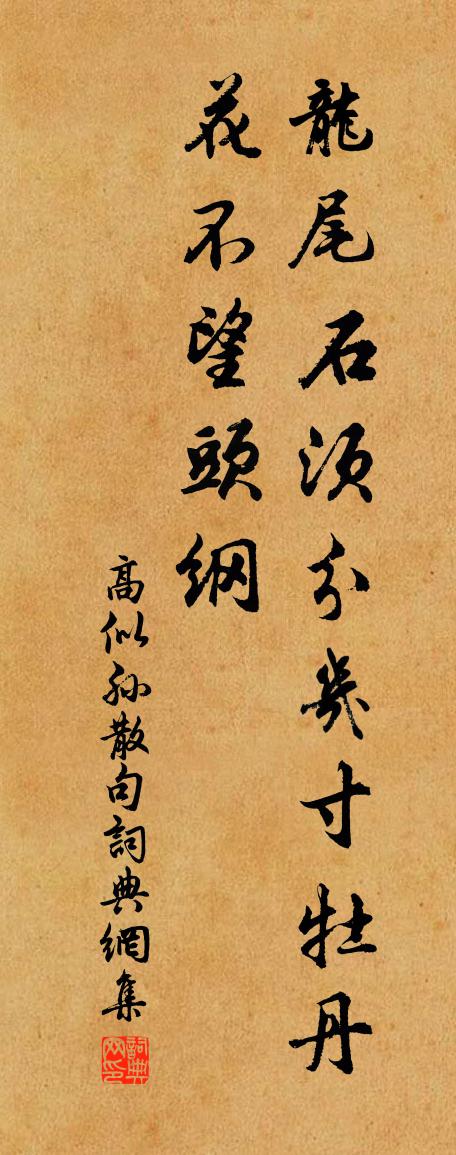 龍尾石須分幾寸牡丹
花不望頭綱
高似孫散句詞典網集
詞典网印